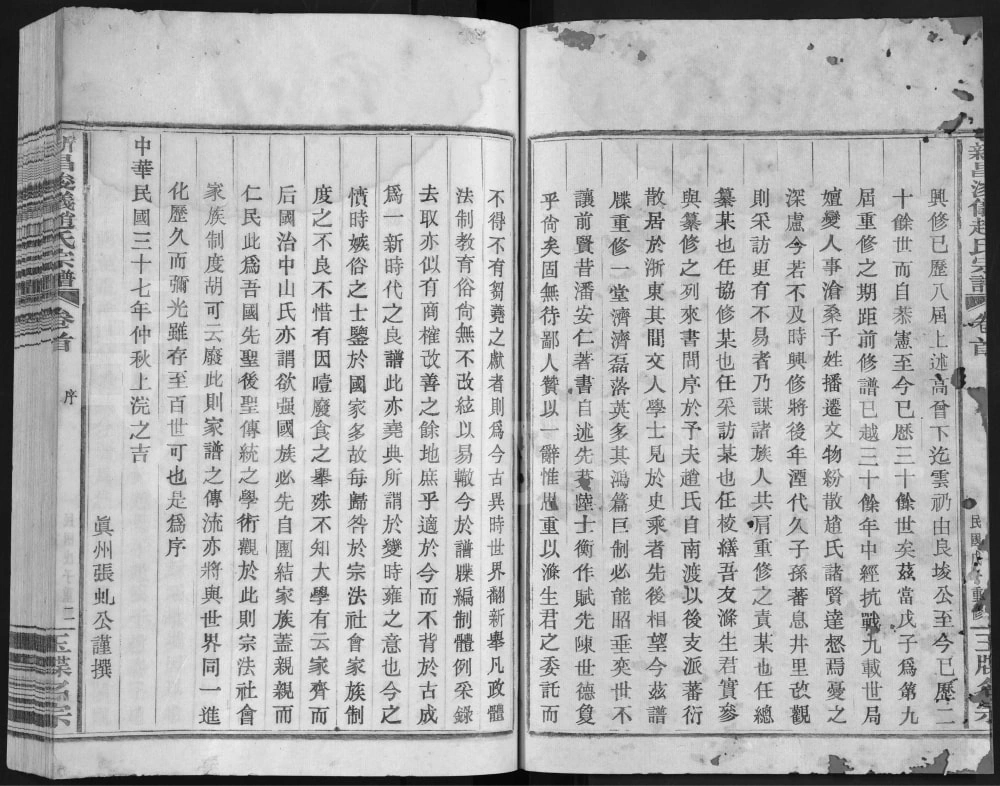 興修已歷八屆上述高曾下迄雲礽由良埈公至今已歷二
十餘世而自恭憲至今已歷三十餘世矣茲當戊子爲第九
屆重修之期距前修譜已越三十餘年中經抗戰九載世局
嬗變人事滄桑子姓播遷文物紛散趙氏諸賢達惄焉憂之
深慮今若不及時興修將後年湮代久子孫蕃息井里改觀
則采訪更有不易者乃謀諸族人共肩重修之責某也任總
纂某也任協修某也任采訪某也任校繕吾友滌生君實參
與纂修之列來書問序於予夫趙氏自南渡以後支派蕃衍
散居於浙東其間文人學士見於史乘者先後相望今茲譜
牒重修一堂濟濟磊落英多其鴻篇巨制必能昭垂奕世不
讓前賢昔潘安仁著書自述先蓍陸士衡作賦先陳世德敻
乎尙矣固無待鄙人贊以一辭惟思重以滌生君之委託而
不得不有芻蕘之獻者則爲今古異時世界翻新舉凡政體
法制教育俗尙無不改絃以易轍今於譜牒編制體例采錄
去取亦似有商榷改善之餘地庶乎適於今而不背於古成
爲一新時代之良譜此亦堯典所謂於變時雍之意也今之
憤時嫉俗之士鑒於國家多故每歸咎於宗法社會家族制
度之不良不惜有因噎廢食之舉殊不知大學有云家齊而
后國治中山氏亦謂欲强國族必先自團結家族蓋親親而
仁民此爲吾國先聖後聖傳統之學術觀於此則宗法社會
家族制度胡可云廢此則家譜之傳流亦將與世界同一進
化歷久而彌光雖存至百世可也是爲序
中華民國三十七年仲秋上浣之吉
眞州張虬公謹撰
氏宗譜
卷首
序
二